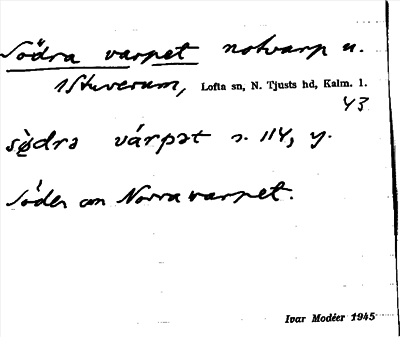 Södra varpet notvarp u.
Stuverum, Lofta sn, N. Tjusts hd, Kalm. l.
43
sødrə várpət s. 114, y.
Söder om Norra varpet.
Ivar Modéer 1945